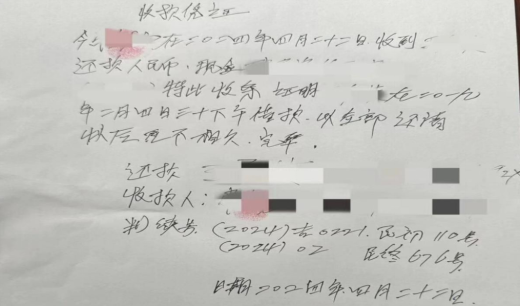 收款条证
今 在二〇二四年四月二十二日收到
还款人民币.现金
特此收条 证明 在二〇一九
年二月四日三十下午借款.以全部还清
以后互不相欠.完毕.
还款
收款人:
判决号(2024)吉0221.民初110号
(2024)02 民终676号
日期二〇二四年四月二十二日.